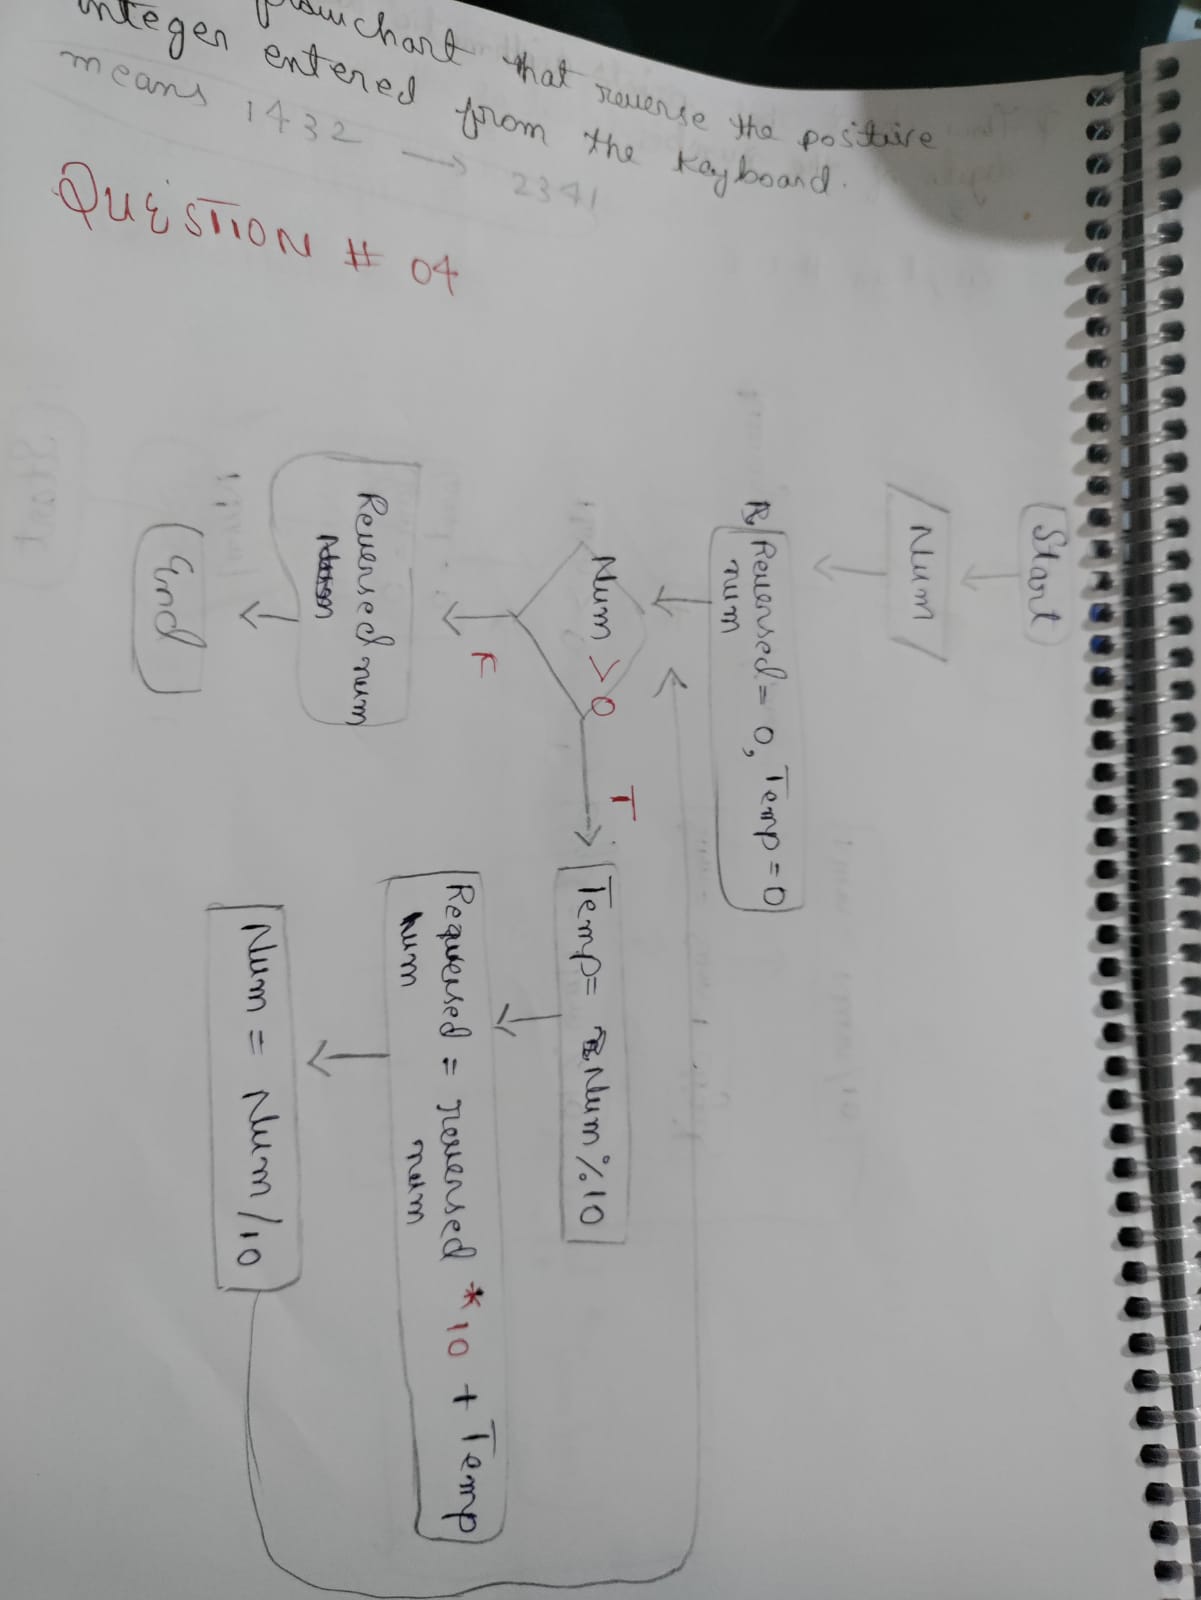 flowchart that reverse the positive
integer entered from the keyboard.
means 1432 → 2341
QUESTION # 04
Start
Num
Reversed = 0, Temp = 0
num
Num > 0
T
F
Temp = Num % 10
Reversed = reversed * 10 + Temp
num num
Num = Num / 10
Reversed num
End